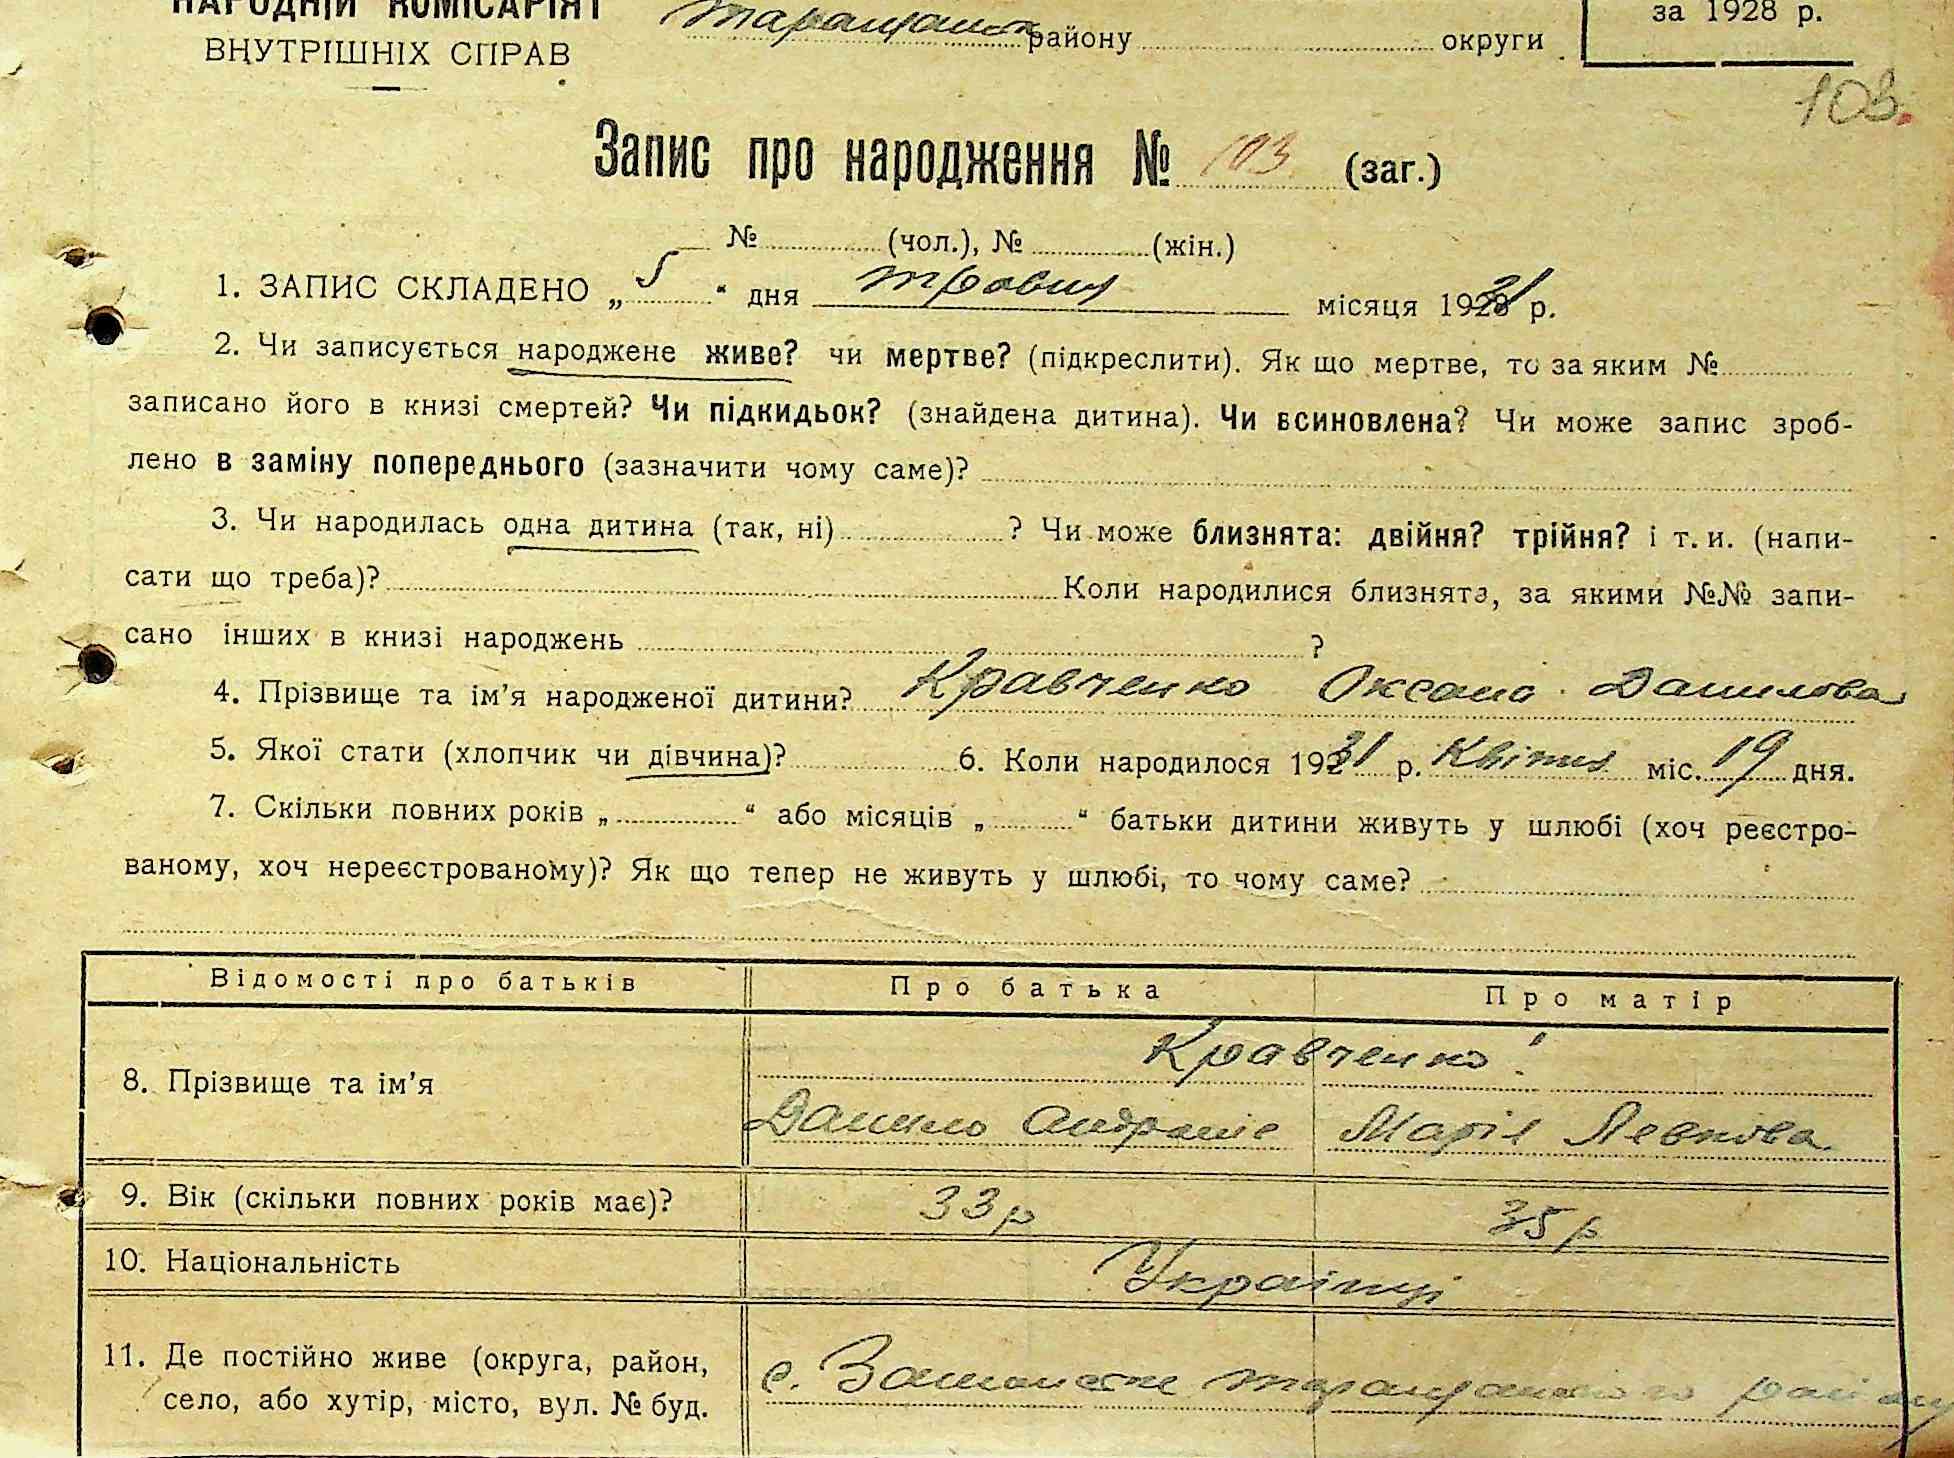 НАРОДНІЙ КОМІСАРІЯТ
ВНУТРІШНІХ СПРАВ
району округи
за 1928 р.
103.
Запис про народження № 103 (заг.)
№ (чол.), № (жін.)
1. ЗАПИС СКЛАДЕНО „ 5 “ дня травня місяця 1931 р.
2. Чи записується народжене живе? чи мертве? (підкреслити). Як що мертве, то за яким №
записано його в книзі смертей? Чи підкидьок? (знайдена дитина). Чи всиновлена? Чи може запис зроб-
лено в заміну попереднього (зазначити чому саме)?
3. Чи народилась одна дитина (так, ні) ? Чи може близнята: двійня? трійня? і т. и. (напи-
сати що треба)? Коли народилися близнята, за якими №№ запи-
сано інших в книзі народжень ?
4. Прізвище та ім’я народженої дитини? Кравченко Оксана Данилова
5. Якої стати (хлопчик чи дівчина)? 6. Коли народилося 1931 р. Квітня міс. 19 дня.
7. Скільки повних років „ “ або місяців „ “ батьки дитини живуть у шлюбі (хоч реєстро-
ваному, хоч нереєстрованому)? Як що тепер не живуть у шлюбі, то чому саме?
Відомості про батьків Про батька Про матір
8. Прізвище та ім’я Кравченко
Данило Марія Левкова
9. Вік (скільки повних років має)? 33 р 35 р
10. Національність Українці
11. Де постійно живе (округа, район,
село, або хутір, місто, вул. № буд.
с. Таращанського району